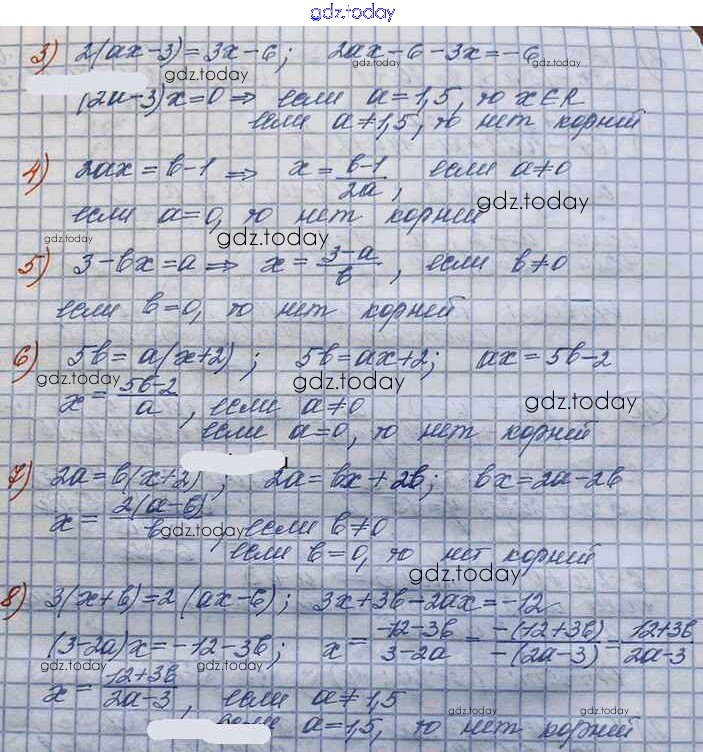 gdz.today
3) 2(ax-3)=3x-6; 2ax-6-3x=-6
gdz.today gdz.today
(2a-3)x=0 ⇒ если a=1,5, то x∈R
gdz.today gdz.today
если a≠1,5, то нет корней
4) 2ax=b-1 ⇒ x=(b-1)/2a, если a≠0
gdz.today gdz.today
если a=0, то нет корней
gdz.today gdz.today
5) 3-bx=a ⇒ x=(3-a)/b, если b≠0
если b=0, то нет корней
6) 5b=a(x+2); 5b=ax+2; ax=5b-2
gdz.today gdz.today gdz.today
x=(5b-2)/a, если a≠0
если a=0, то нет корней
7) 2a=b(x+2); 2a=bx+2b; bx=2a-2b
x=2(a-b)/b, если b≠0
gdz.today
если b=0, то нет корней
gdz.today
8) 3(x+b)=2(ax-6); 3x+3b-2ax=-12
(3-2a)x=-12-3b; x=(-12-3b)/(3-2a)=-(12+3b)/-(2a-3)=(12+3b)/(2a-3)
gdz.today gdz.today gdz.today gdz.today
x=(12+3b)/(2a-3), если a≠1,5
если a=1,5, то нет корней
gdz.today gdz.today gdz.today